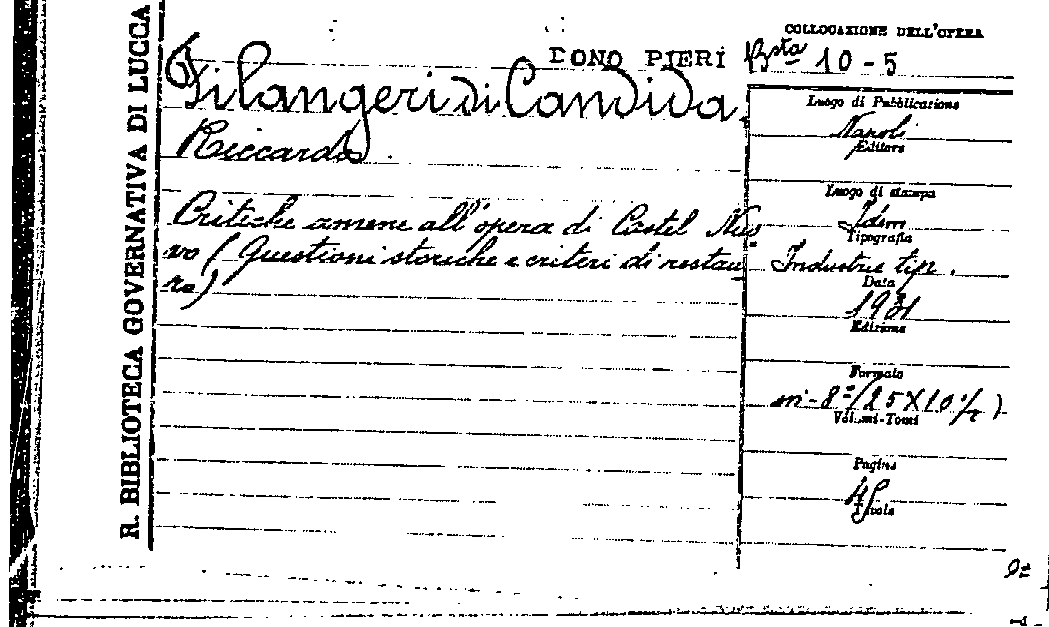 R. BIBLIOTECA GOVERNATIVA DI LUCCA
COLLOCAZIONE DELL'OPERA
DONO PIERI Bsta 10-5
Filangeri di Candida
Riccardo
Critiche amene all'opera di Castel Nuo
vo (Questioni storiche e criteri di restau
ro)
Luogo di Pubblicazione
Napoli
Editore
Luogo di stampa
Idem
Tipografia
Industrie tip.
Data
1931
Edizione
Formato
in-8º (25X10½)
Volumi-Tomi
Pagine
Tavole